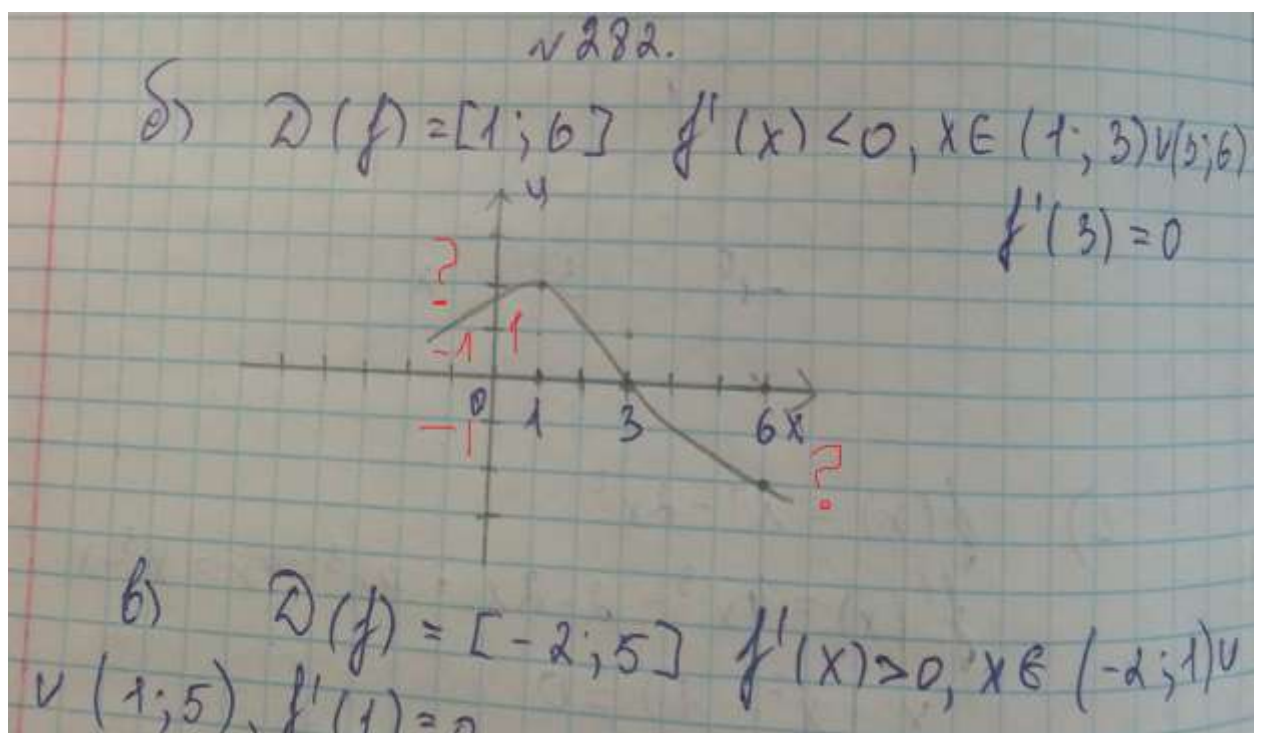 № 282.
б) D(f)=[1;6] f'(x)<0, x∈(1;3)∪(3;6)
f'(3)=0
y
?
-1 1
0 1 3 6 x
-1
?
в) D(f)=[-2;5] f'(x)>0, x∈(-2;1)∪
∪(1;5), f'(1)=0